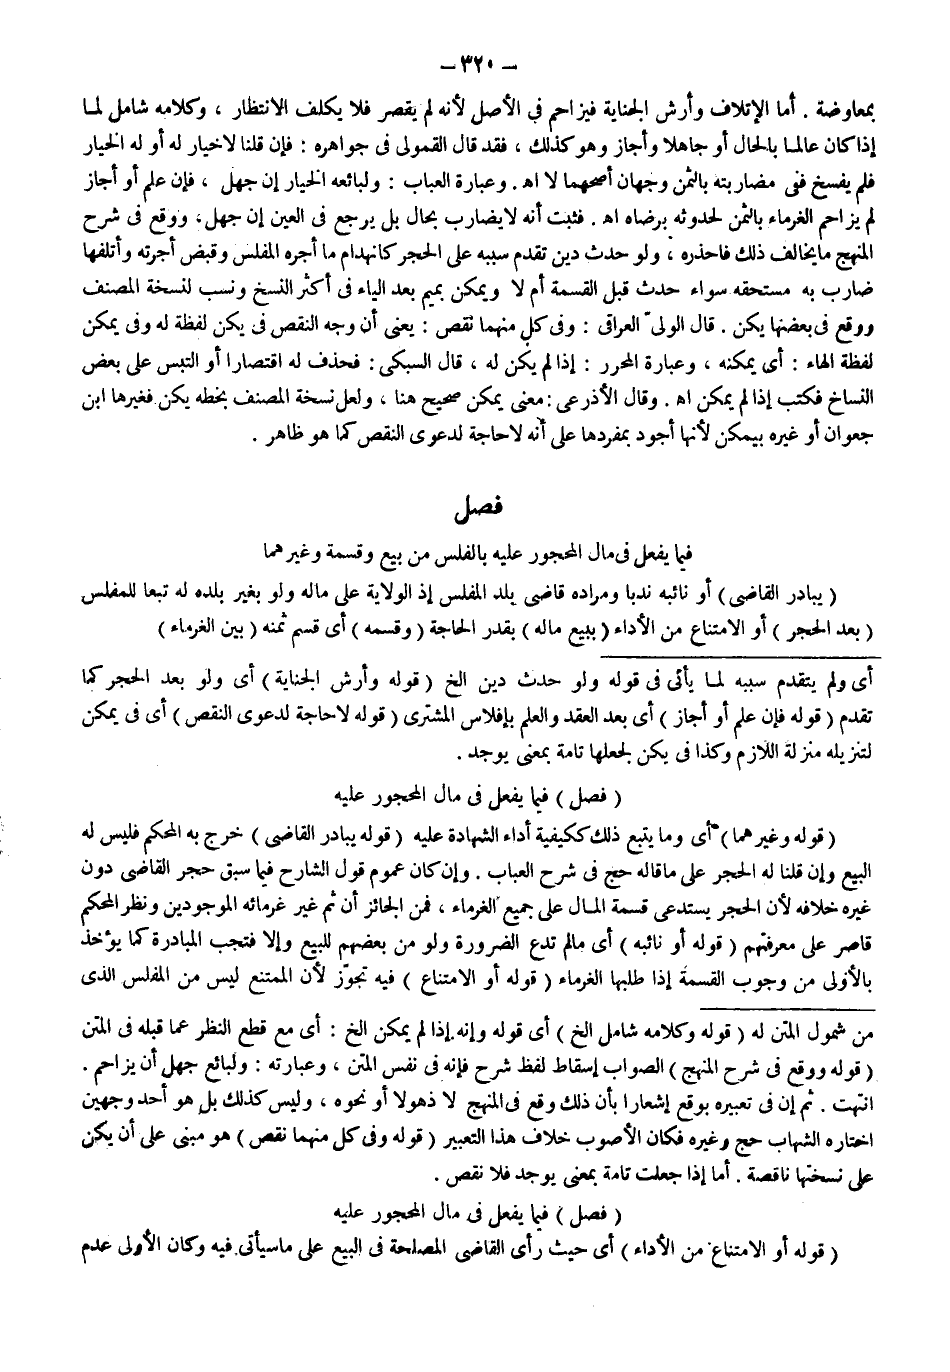 – ٣٢٠ –
بمعاوضة . أما الإتلاف وأرش الجناية فيزاحم في الأصل لأنه لم يقصر فلا يكلف الانتظار ، وكلامه شامل لما
إذا كان عالما بالحال أو جاهلا وأجاز وهو كذلك ، فقد قال القمولى فى جواهره : فإن قلنا لاخيار له أو له الخيار
فلم يفسخ فنى مضاربته بالثمن وجهان أصحهما لا اه . وعبارة العباب : ولبائعه الخيار إن جهل ، فإن علم أو أجاز
لم يزاحم الغرماء بالثمن لحدوثه برضاه اه . فثبت أنه لايضارب بحال بل يرجع فى العين إن جهل ، ووقع فى شرح
المنهج مايخالف ذلك فاحذره ، ولو حدث دين تقدم سببه على الحجر كانهدام ما أجره المفلس وقبض أجرته وأتلفها
ضارب به مستحقه سواء حدث قبل القسمة أم لا ويمكن بميم بعد الياء فى أكثر النسخ ونسب لنسخة المصنف
ووقع فى بعضها يكن . قال الولىّ العراقى : وفى كل منهما نقص : يعنى أن وجه النقص فى يكن لفظة له وفى يمكن
لفظة الهاء : أى يمكنه ، وعبارة المحرر : إذا لم يكن له ، قال السبكى : فحذف له اقتصارا أو التبس على بعض
النساخ فكتب إذا لم يمكن اه . وقال الأذرعى : معنى يمكن صحيح هنا ، ولعل نسخة المصنف بخطه يكن فغيرها ابن
جعوان أو غيره بيمكن لأنها أجود بمفردها على أنه لاحاجة لدعوى النقص كما هو ظاهر .
فصل
فيما يفعل فى مال المحجور عليه بالفلس من بيع وقسمة وغيرهما
( يبادر القاضى ) أو نائبه ندبا ومراده قاضى بلد المفلس إذ الولاية على ماله ولو بغير بلده له تبعا للمفلس
( بعد الحجر ) أو الامتناع من الأداء ( ببيع ماله ) بقدر الحاجة ( وقسمه ) أى قسم ثمنه ( بين الغرماء )
أى ولم يتقدم سببه لما يأتى فى قوله ولو حدث دين الخ ( قوله وأرش الجناية ) أى ولو بعد الحجر كما
تقدم ( قوله فإن علم أو أجاز ) أى بعد العقد والعلم بإفلاس المشترى ( قوله لاحاجة لدعوى النقص ) أى فى يمكن
لتنزيله منزلة اللازم وكذا فى يكن لجعلها تامة بمعنى يوجد .
( فصل ) فيما يفعل فى مال المحجور عليه
( قوله وغيرهما ) أى وما يتبع ذلك ككيفية أداء الشهادة عليه ( قوله يبادر القاضى ) خرج به المحكم فليس له
البيع وإن قلنا له الحجر على ماقاله حج فى شرح العباب . وإن كان عموم قول الشارح فيما سبق حجر القاضى دون
غيره خلافه لأن الحجر يستدعى قسمة المال على جميع الغرماء ، فمن الجائز أن ثم غير غرمائه الموجودين ونظر المحكم
قاصر على معرفتهم ( قوله أو نائبه ) أى مالم تدع الضرورة ولو من بعضهم للبيع وإلا فتجب المبادرة كما يؤخذ
بالأولى من وجوب القسمة إذا طلبها الغرماء ( قوله أو الامتناع ) فيه تجوّز لأن الممتنع ليس من المفلس الذى
من شمول المتن له ( قوله وكلامه شامل الخ ) أى قوله وإنه إذا لم يمكن الخ : أى مع قطع النظر عما قبله فى المتن
( قوله ووقع فى شرح المنهج ) الصواب إسقاط لفظ شرح فإنه فى نفس المتن ، وعبارته : ولبائع جهل أن يزاحم .
انتهت . ثم إن فى تعبيره بوقع إشعارا بأن ذلك وقع فى المنهج لا ذهولا أو نحوه ، وليس كذلك بل هو أحد وجهين
اختاره الشهاب حج وغيره فكان الأصوب خلاف هذا التعبير ( قوله وفى كل منهما نقص ) هو مبنى على أن يكن
على نسختها ناقصة . أما إذا جعلت تامة بمعنى يوجد فلا نقص .
( فصل ) فيما يفعل فى مال المحجور عليه
( قوله أو الامتناع من الأداء ) أى حيث رأى القاضى المصلحة فى البيع على ماسيأتى فيه وكان الأولى عدم